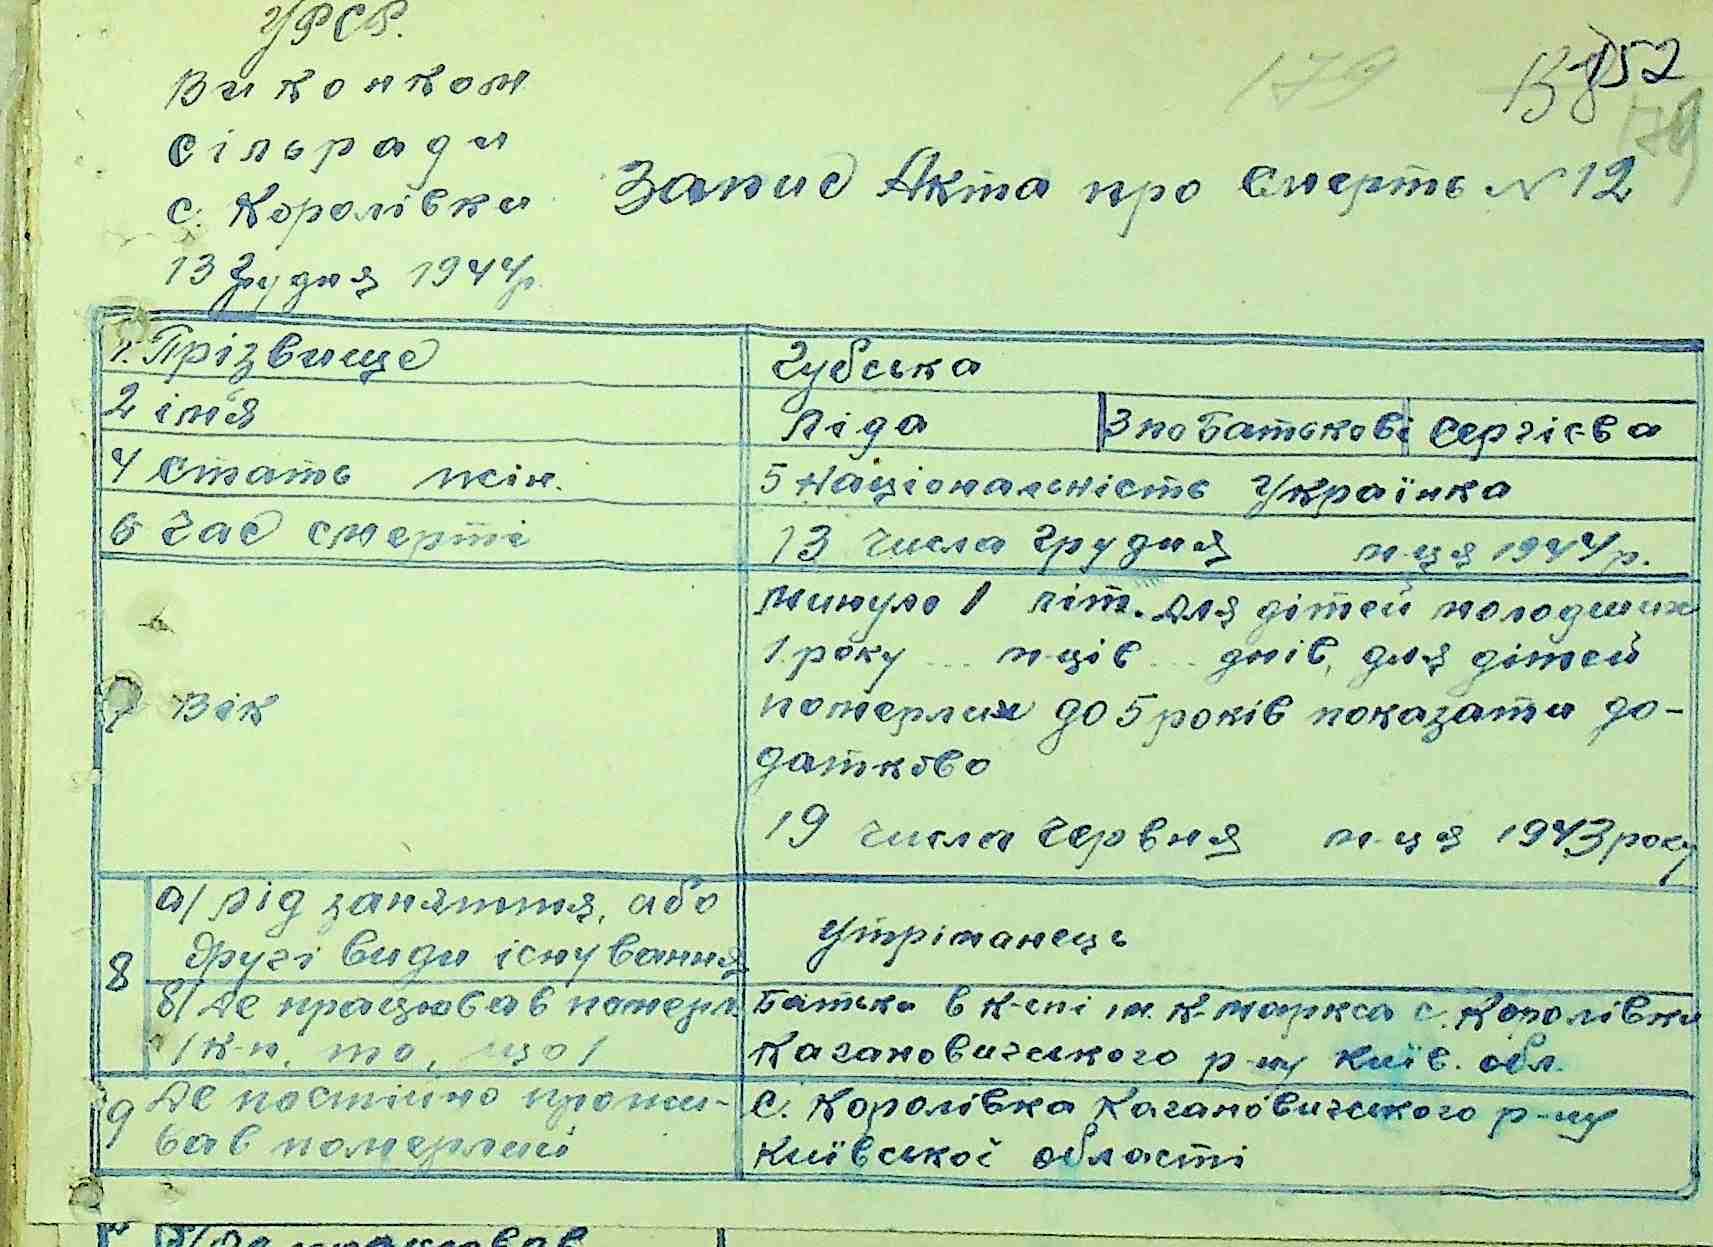 УРСР.
Виконком
сільради
с. Королівки
13 грудня 1944р.
179
152
179
Запис Акта про смерть N 12
1. Прізвище Губська
2 імя Ліда 3 по батькові Сергієва
4 Стать жін. 5 Національність Українка
6 Час смерті 13 числа грудня м-ця 1944р.
7 Вік
минуло 1 літ. Для дітей молодших
1 року ... м-ців ... днів, для дітей
померлих до 5 років показати до-
датково
19 числа червня м-ця 1943 року
8 а/ рід заняття, або
другі види існування
утріманець
в/ Де працював померл.
/к-п, то, що/
Батько в к-спі ім. К-маркса с. Королівки
Кагановичського р-ну Київ. обл.
9 Де постійно прожи-
вав померлий
с. Королівка Кагановичського р-ну
Київської області